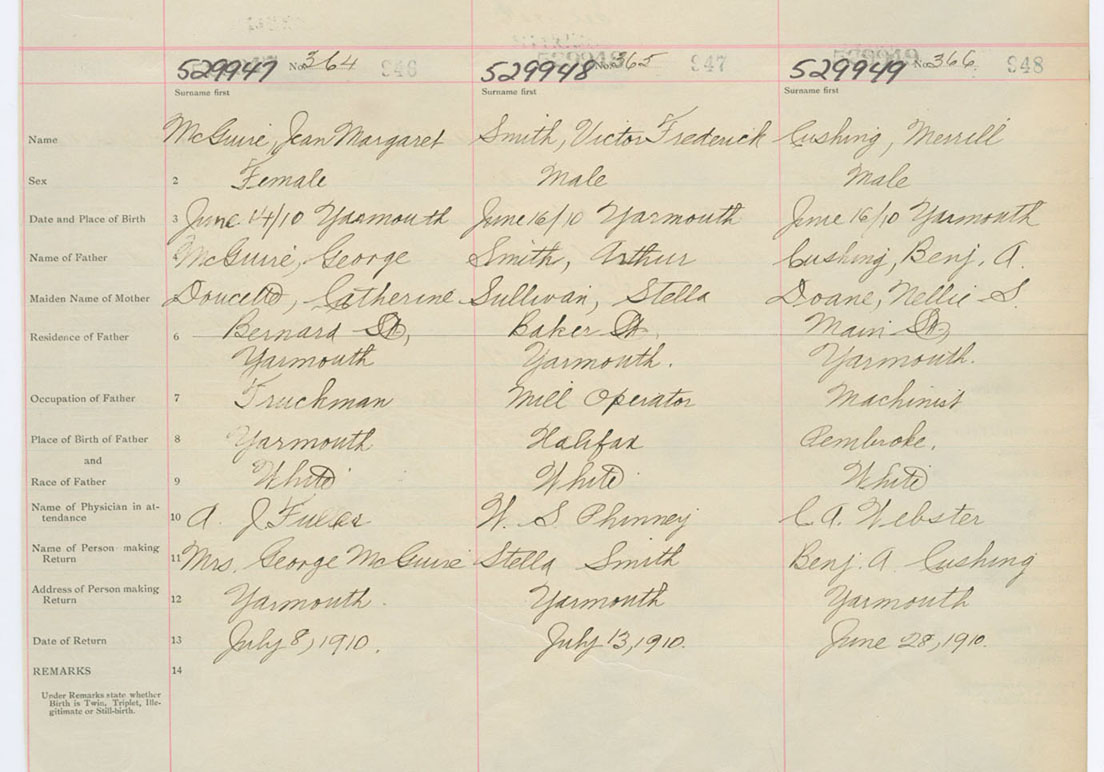 529947 No. 364 946 529948 No. 365 947 529949 No. 366 948
Surname first Surname first Surname first
Name McGuire, Jean Margaret Smith, Victor Frederick Cushing, Merrill
Sex 2 Female Male Male
Date and Place of Birth 3 June 14/10 Yarmouth June 16/10 Yarmouth June 16/10 Yarmouth
Name of Father McGuire, George Smith, Arthur Cushing, Benj. A.
Maiden Name of Mother Doucette, Catherine Sullivan, Stella Doane, Nellie S.
Residence of Father 6 Bernard St, Baker St. Main St,
Yarmouth Yarmouth. Yarmouth.
Occupation of Father 7 Truckman Mill Operator Machinist
Place of Birth of Father 8 Yarmouth Halifax Pembroke.
and
Race of Father 9 White White White
Name of Physician in at-
tendance 10 A. J. Fuller W. S. Phinney C. A. Webster
Name of Person making
Return 11 Mrs. George McGuire Stella Smith Benj. A Cushing
Address of Person making
Return 12 Yarmouth. Yarmouth Yarmouth
Date of Return 13 July 8, 1910. July 13, 1910. June 28, 1910.
REMARKS 14
Under Remarks state whether
Birth is Twin, Triplet, Ille-
gitimate or Still-birth.